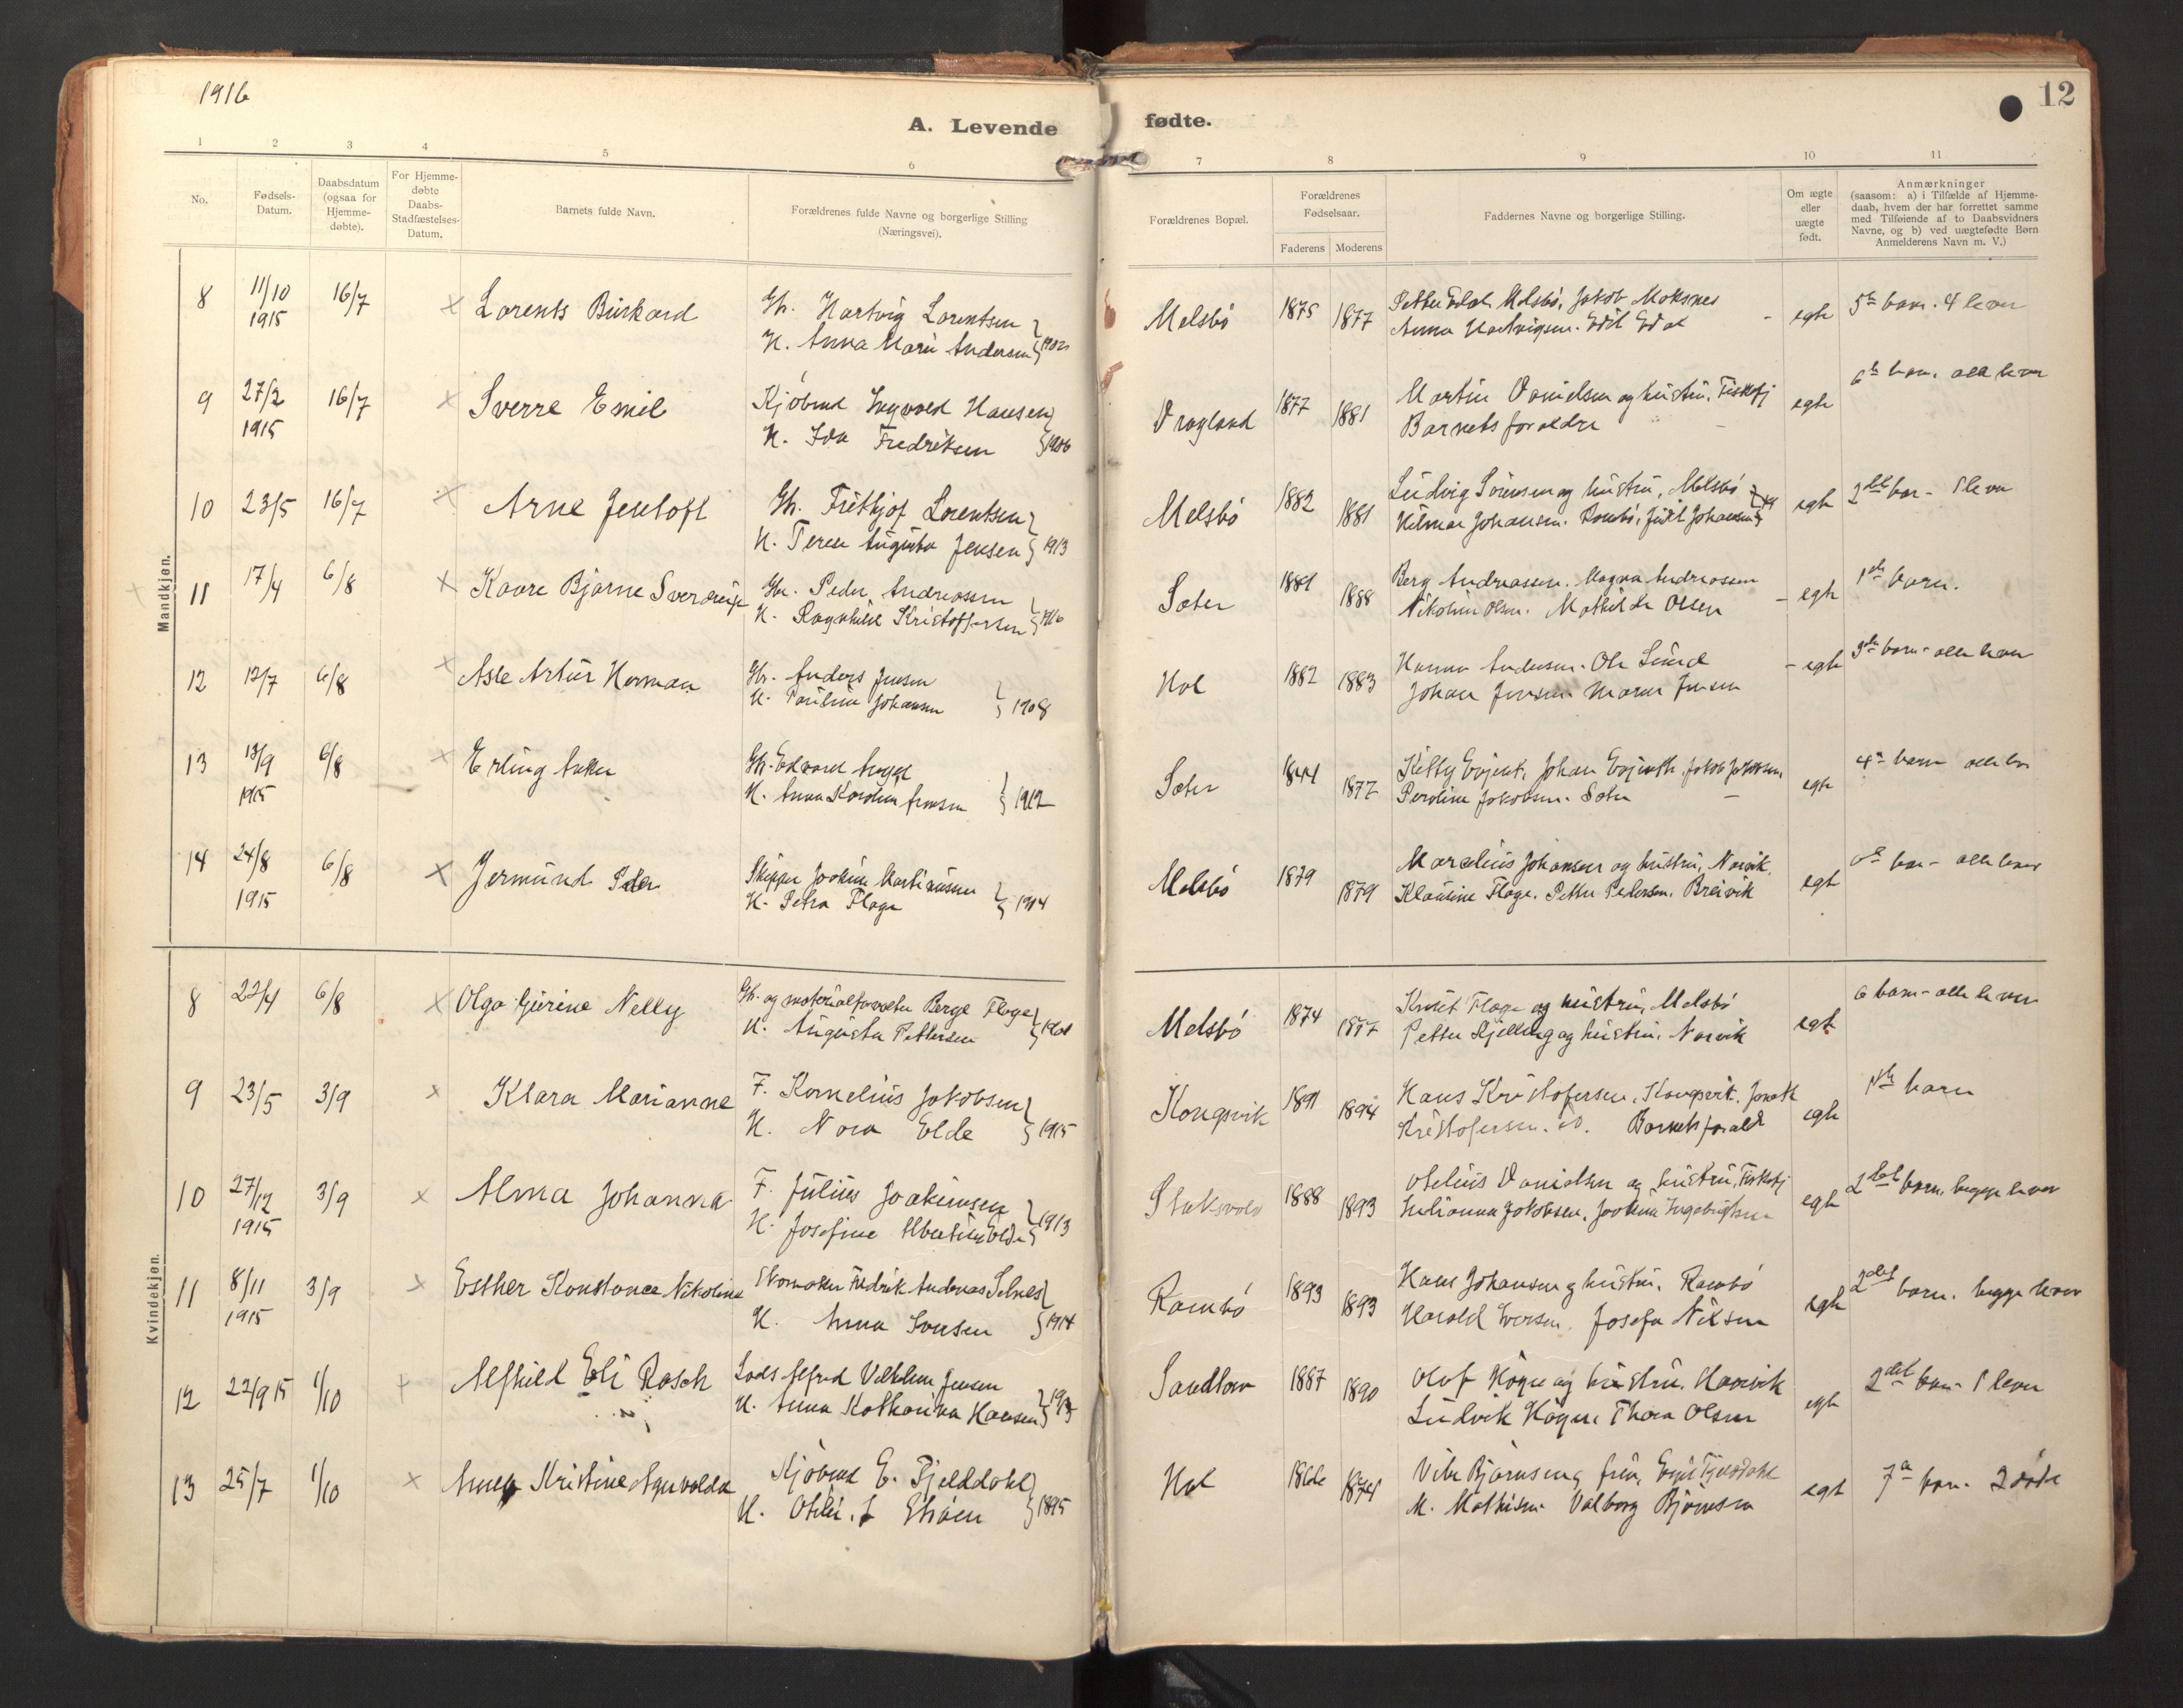 1916
12
A. Levende fødte.
1 2 3 4 5 6 7 8 9 10 11
No.
Fødsels-Datum.
Daabsdatum (ogsaa for Hjemme-døbte).
For Hjemme-døbte Daabs-Stadfæstelses-Datum.
Barnets fulde Navn.
Forældrenes fulde Navne og borgerlige Stilling (Næringsvei).
Forældrenes Bopæl.
Forældrenes Fødselsaar.
Faderens Moderens
Faddernes Navne og borgerlige Stilling.
Om ægte eller uægte født.
Anmærkninger
(saasom: a) i Tilfælde af Hjemme-daab, hvem der har forrettet samme med Tilføiende af to Daabsvidners Navne, og b) ved uægtefødte Børn Anmelderens Navn m. V.)
Mandkjøn.
8 11/10 1915 16/7 Lorents Burkard
Gb. Hartvig Lorentsen
H. Anna Marie Andersen
Melsbö 1875 1877
Petter Edal Melsbö, Jakob Moksnes
Anna Hartvigsen. Edit Edal
egte 5te barn. 4 lever
9 27/2 1915 16/7 Sverre Emil
Kjöbmd Ingvald Hansen
H. Ida Fredriksen 1906
Dragland 1877 1881
Martin Danielsen og hustru, Fiskefj
Barnets foraldre
egte 6te barn. alle lever
10 23/5 16/7 Arne Jentoft
Gb. Frithjof Lorentsen
H. Terese Augusta Jensen 1913
Melsbö 1882 1881
Ludvig Sörensen og hustru, Melsbö
Hilmar Johansen. Rambö, Judit Johansen
egte 2det bar - 1 lever
11 17/4 6/8 Kaare Bjarne Sverdrup
Gb. Peder Andreassen
H. Ragnhild Kristoffersen 1916
Sæter 1881 1888
Berg Andreassen. Magna Andreassen
Nikoline Olsen. Mathilde Olsen
- egte 1ste barn.
12 12/7 6/8 Asle Artur Herman
Gb. Anders Jensen
H. Pauline Johansen 1908
Hol 1882 1883
Hanna Andersen. Ole Lund
Johan Jensen Maren Jensen
- egte 3die barn - alle lever
13 13/9 1915 6/8 Erling Asker
Gb. Edvard
H. Anna Karoline Jensen 1912
Sæter 1844 1877
Johan Jakob Jakobsen
Peroline Jakobsen. Sæter
egte 4de barn alle lev
14 24/8 1915 6/8 Jermund Peder
Skipper Joakim Martinussen
H. Petra Floge 1914
Melsbö 1879 1879
Marelius Johansen og hustru, Narvik.
Klausine Floge. Petter Pedersen. Breivik
egte bar - alle lever
Kvindekjøn.
8 22/4 6/8 Olga Gurine Nelly
Gb. og materialforvalter Berge Floge
H. Augusta Pettersen
Melsbö 1874 1877
Knut Floge og hustru, Melsbö
Petter Kjelling og hustru. Narvik
egte 6 barn - alle lever
9 23/5 3/9 Klara Marianne
F. Kornelius Jakobsen
H. Nora Elde 1915
Kongsvik 1891 1894
Hans Kristofersen, Kongsvik.
Kristofersen. Barnets forald
egte 1ste barn
10 27/12 1915 3/9 Alma Johanna
F. Julius Joakimsen
H. Josefine Albertine Elde 1913
Stoksvold 1888 1893
Otelius Danielsen og hustru, Fiskefj
Julianna Jakobsen, Joakim Ingebrigtsen
egte 2det barn, begge lever
11 8/11 1915 3/9 Esther Konstance Nikoline
Skomaker Fredrik Andreas Selnes
H. Anna Iversen 1914
Rambö 1893 1893
Hans Johansen og hustru. Rambö
Harald Iversen. Josefa Nilsen
egte 2det barn. begge lever
12 22/9 15 1/10 Alfhild Eli Rasch
Lods Alfred Vilhelm Jensen
H. Anna Katharina Hansen
Sandtorv 1887 1890
Olaf Högne og hustru. Haarvik
Ludvik Högne Thora Olsen
egte 2det barn 1 lever
13 25/7 1/10 Anna Kristine Agnvalda
Kjöbmd E. Fjelldahl
H. Otilie. J 1895
Hol 1874
Bjørnsen og frue,
M. Mathisen Valborg Björnsen
egte 7de barn. 2 döde